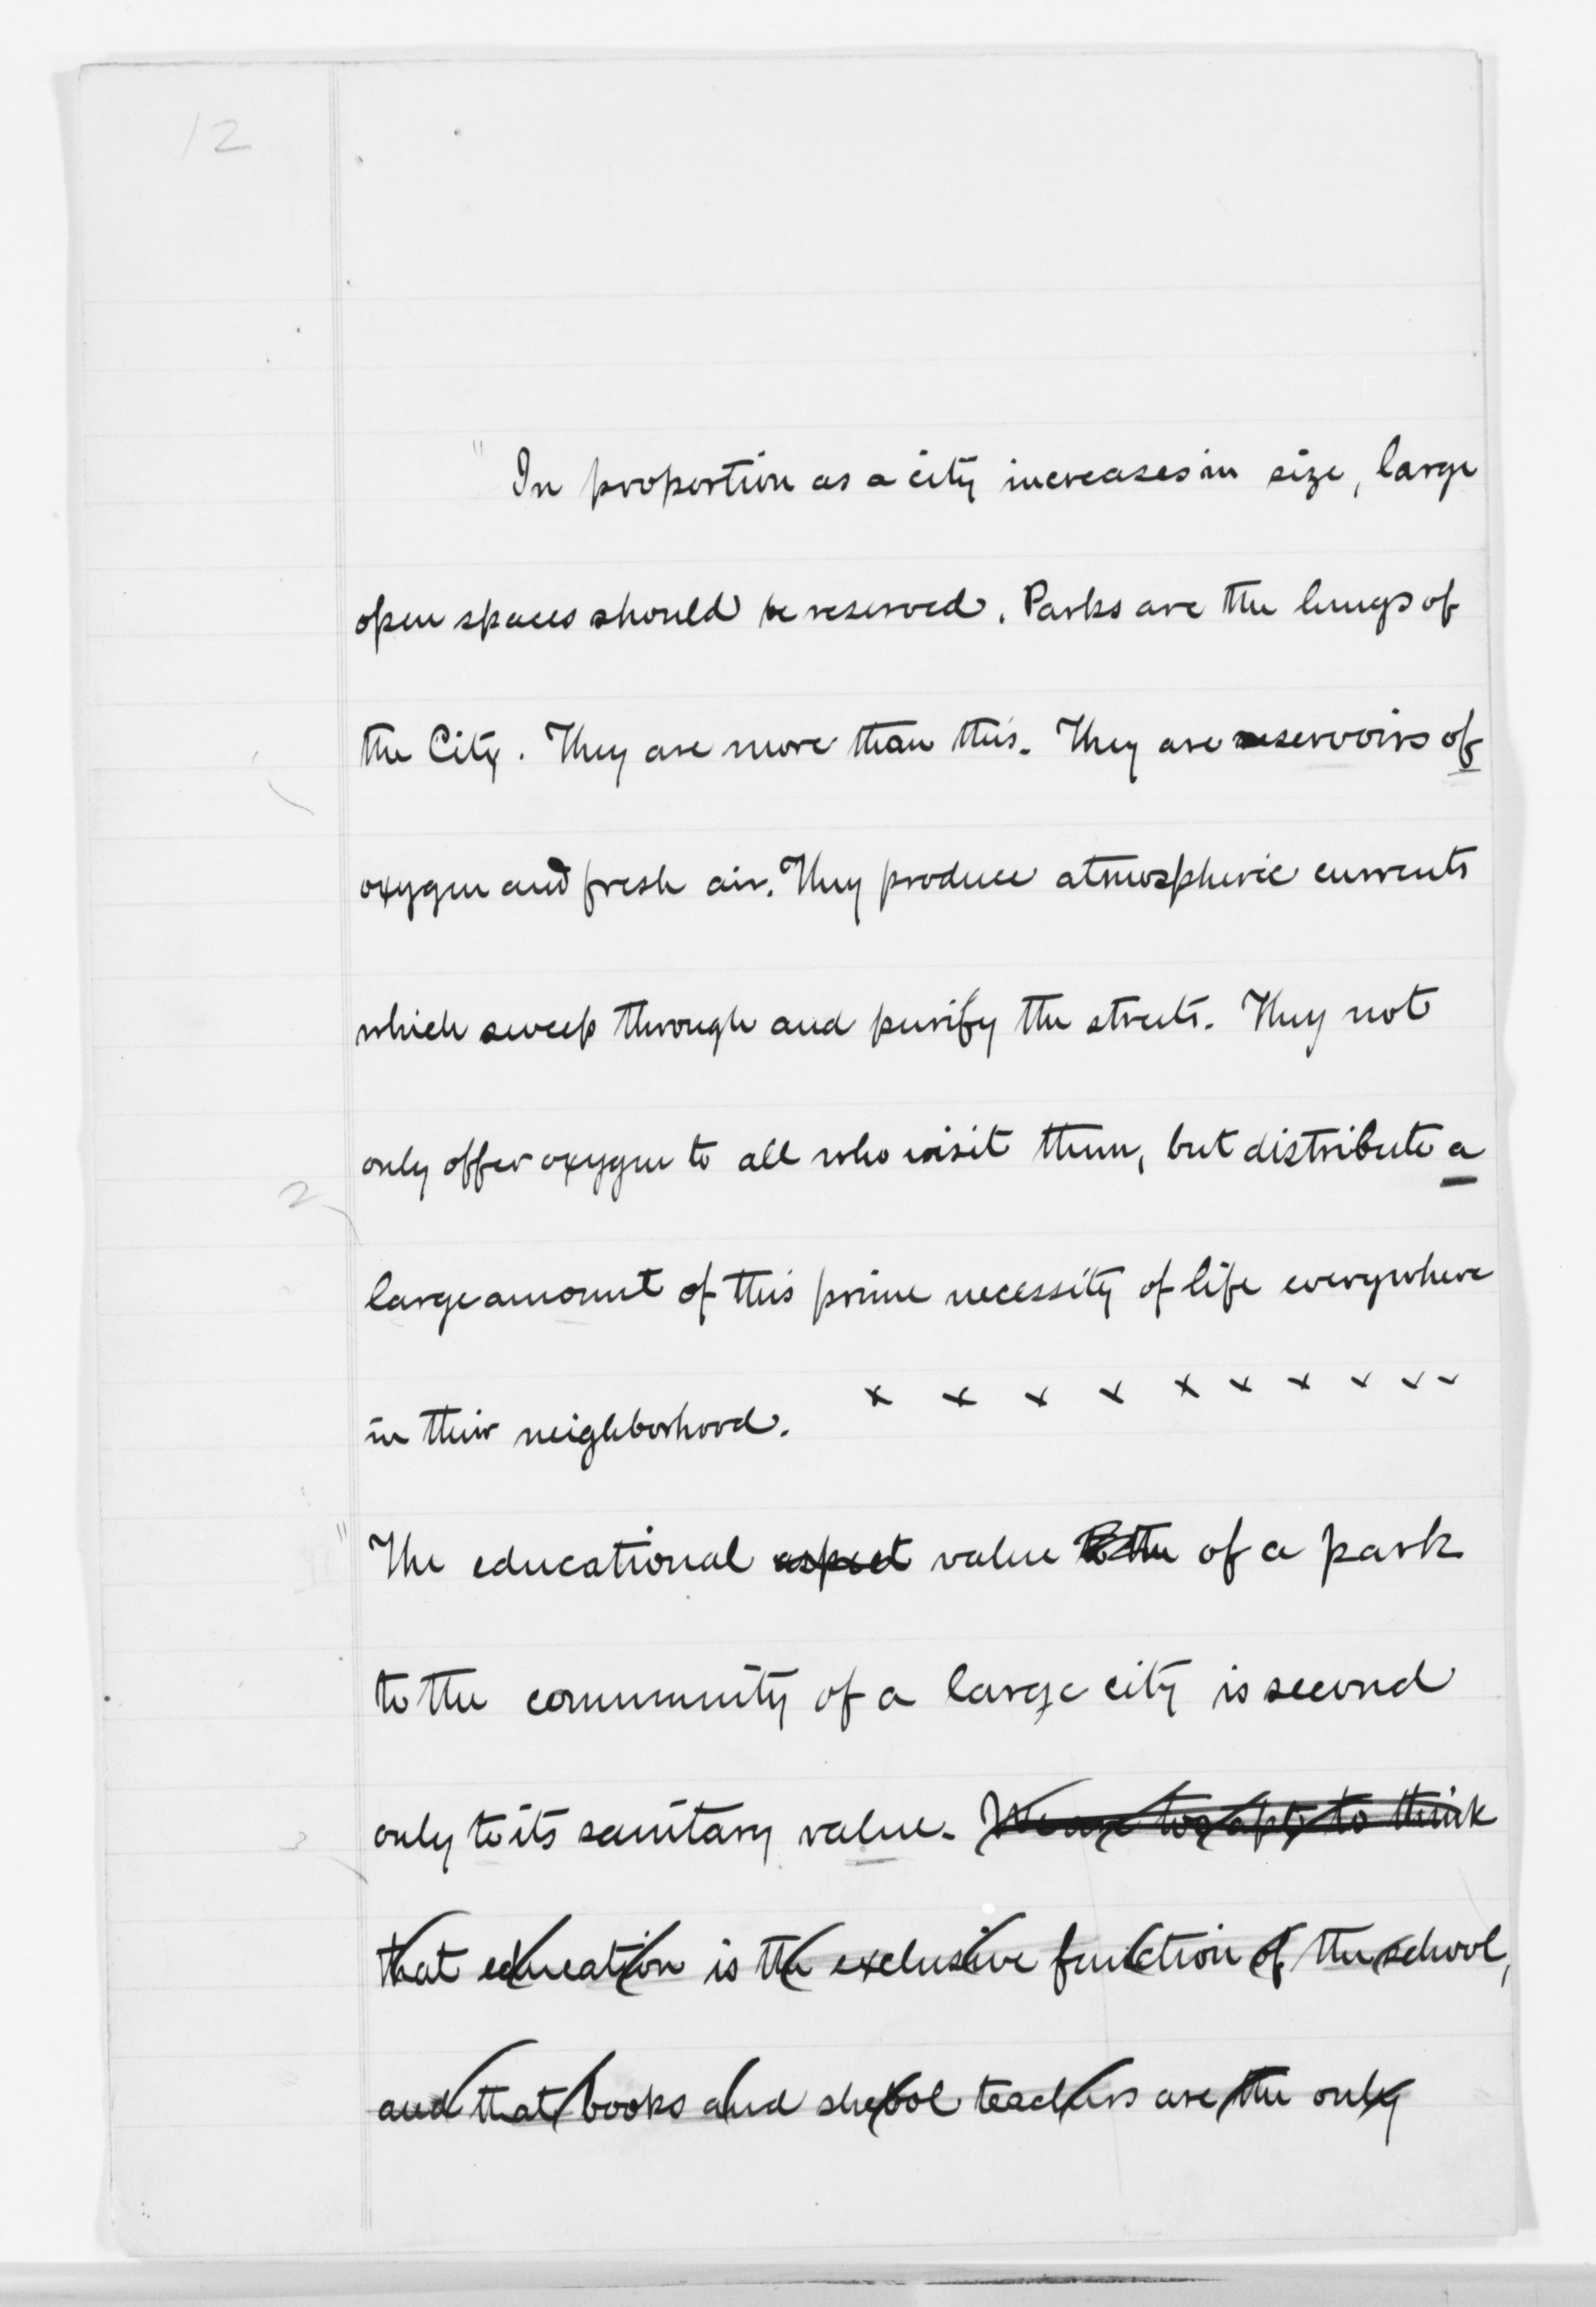 12
" In proportion as a city increases in size, large
open spaces should be reserved. Parks are the lungs of
the City. They are more than this. They are reservoirs of
oxygen and fresh air. They produce atmospheric currents
which sweep through and purify the streets. They not
only offer oxygen to all who visit them, but distribute a
2
large amount of this prime necessity of life everywhere
in their neighborhood. x x x x x x x x x x
" The educational aspect value to the of a park
to the community of a large city is second
only to its sanitary value. We are too apt to think
3
that education is the exclusive function of the school,
and that books and shcool teachers are the only